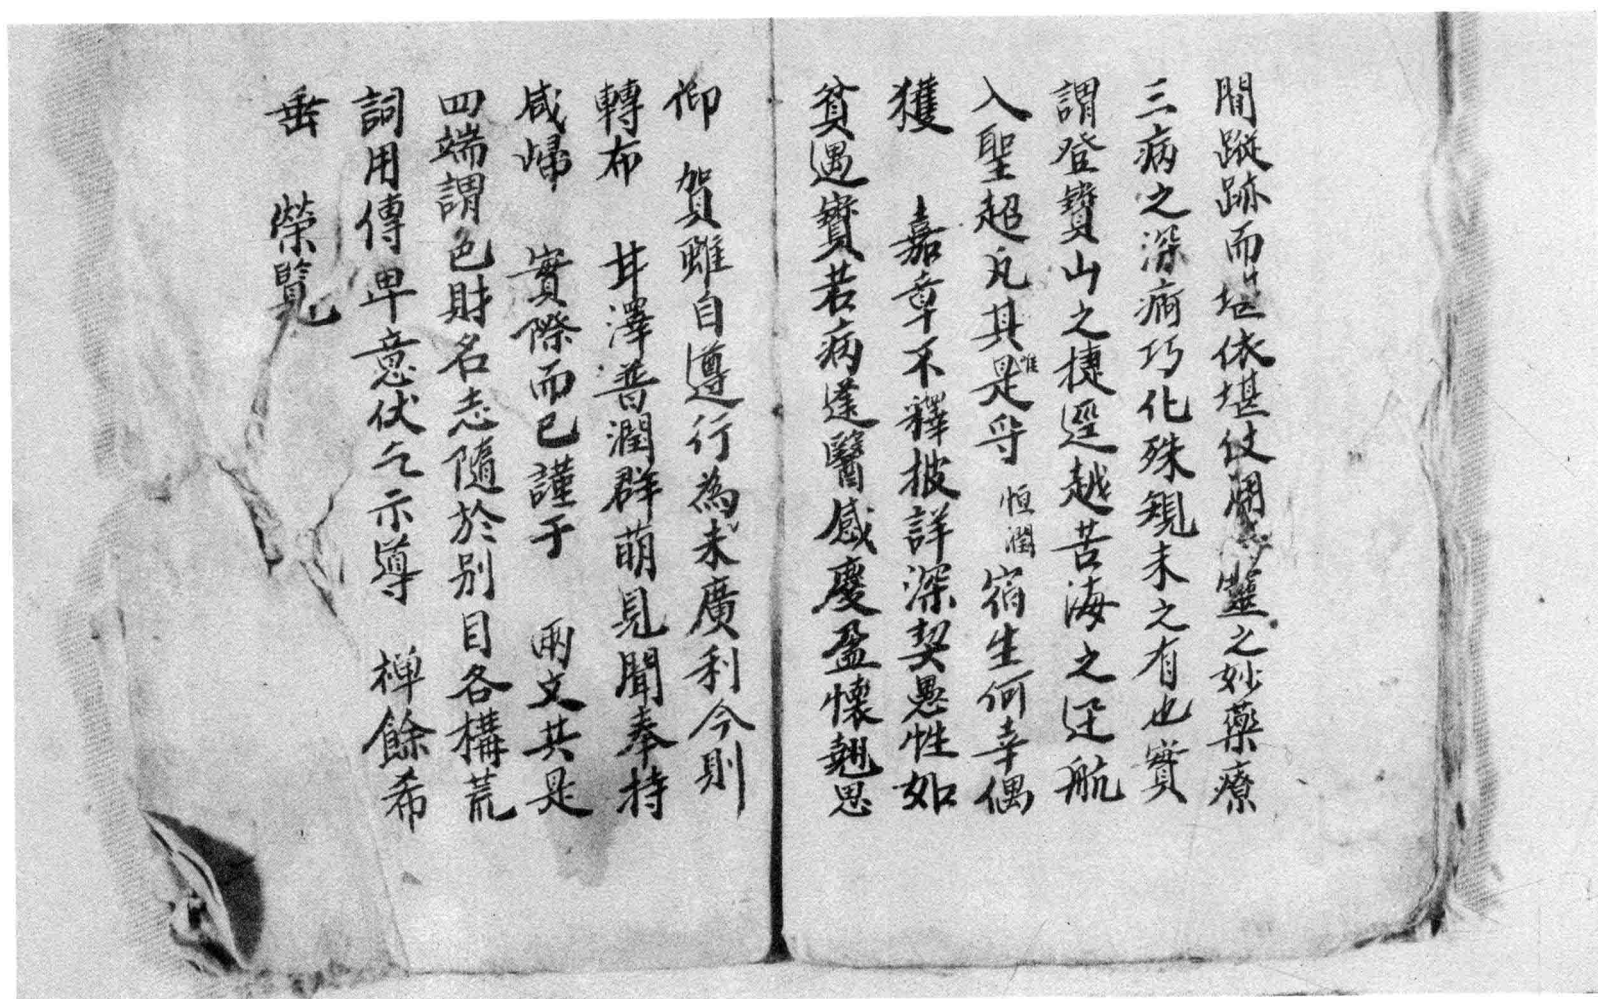 間蹤跡而堪依堪仗用靈之妙藥療
三病之深痾巧化殊䂓未之有也實
謂登寶山之捷逕越苦海之迅航
入聖超凡其唯是乎恒潤宿生何幸偶
獲嘉章不釋披詳深契愚性如
貧遇寶若病逢醫感慶盈懷翹思
仰賀雖自遵行為未廣利今則
轉布甘澤普潤群萌見聞奉持
咸歸實際而已謹于兩文共是
四端謂色財名志隨於別目各構荒
詞用傳卑意伏乞示導禅餘希
垂榮覽